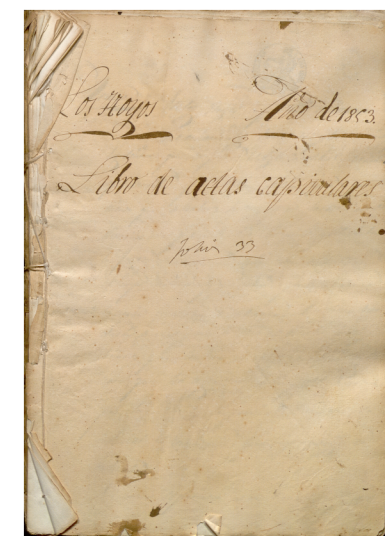 Los Hoyos Año de 1853.
Libro de actas capitulares
folios 33